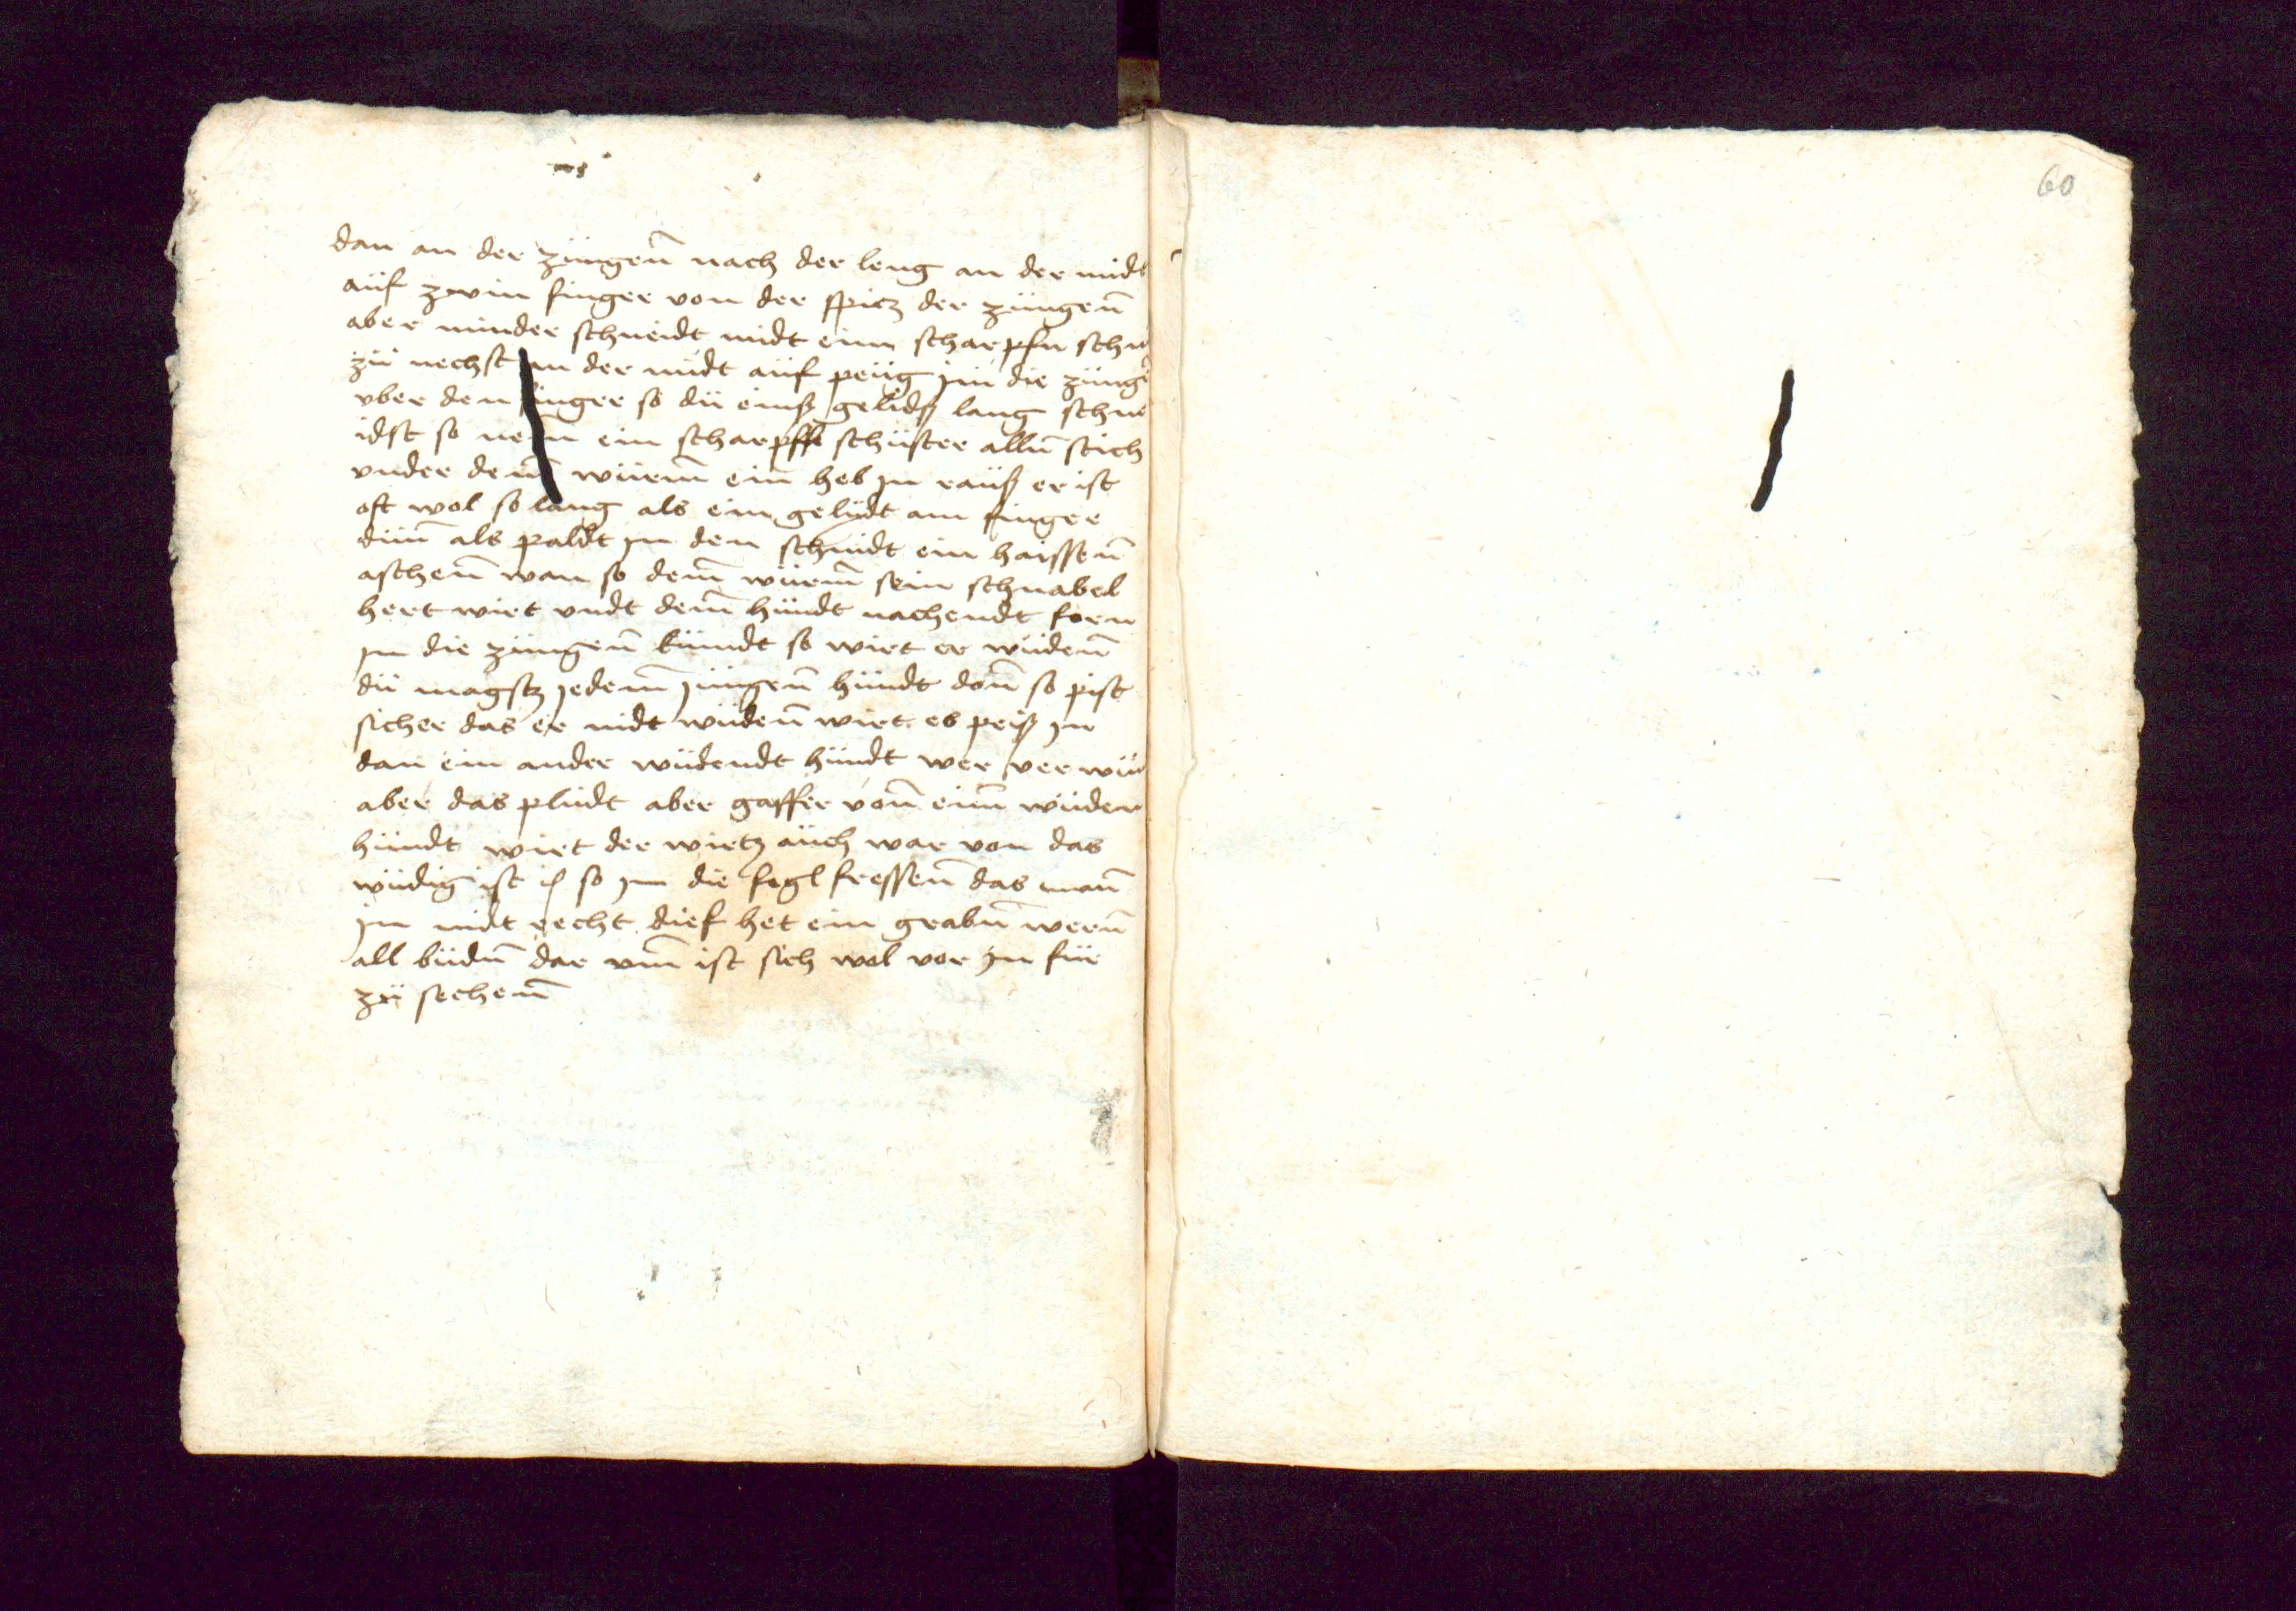 dan an der züngen̄ nach der leng an der midt
auf zwin finger von der spitz der züngen̄
aber minder schneidt midt eim scharpfn
zü nechst in der midt auf peüg in die züng
vber den finger so dü einß gelidß lang schne
idst so nem ein scharpffe schüster alln̄ stich
vnder dem̄ würm̄ ein heb jn rauß er ist
oft wol so lang als ein gelidt am finger
dün̄ als paldt jn den schnidt ein haissen̄
aschen̄ wan so dem̄ würm̄ sein schnabel
hert wirt vndt dem̄ hündt nachendt forn
jn die züngen̄ kümdt so wirt er wüden̄
dü magstz jedem̄ jüngen̄ hündt don̄ so pist
sicher das er nidt wüden̄ wirt es peiß jn
dan ein ander wüdendt hündt wer ver
aber das plüdt aber gaffer von̄ eim̄ wüden
hündt wirt der wirtz auch war von das
wüdig ist so jm die fogl fressen̄ das man̄
jn nidt recht dief het ein grabn̄ wern̄
all büdn̄ dar vm̄ ist sich wol vor jn für
zü sechen̄
60